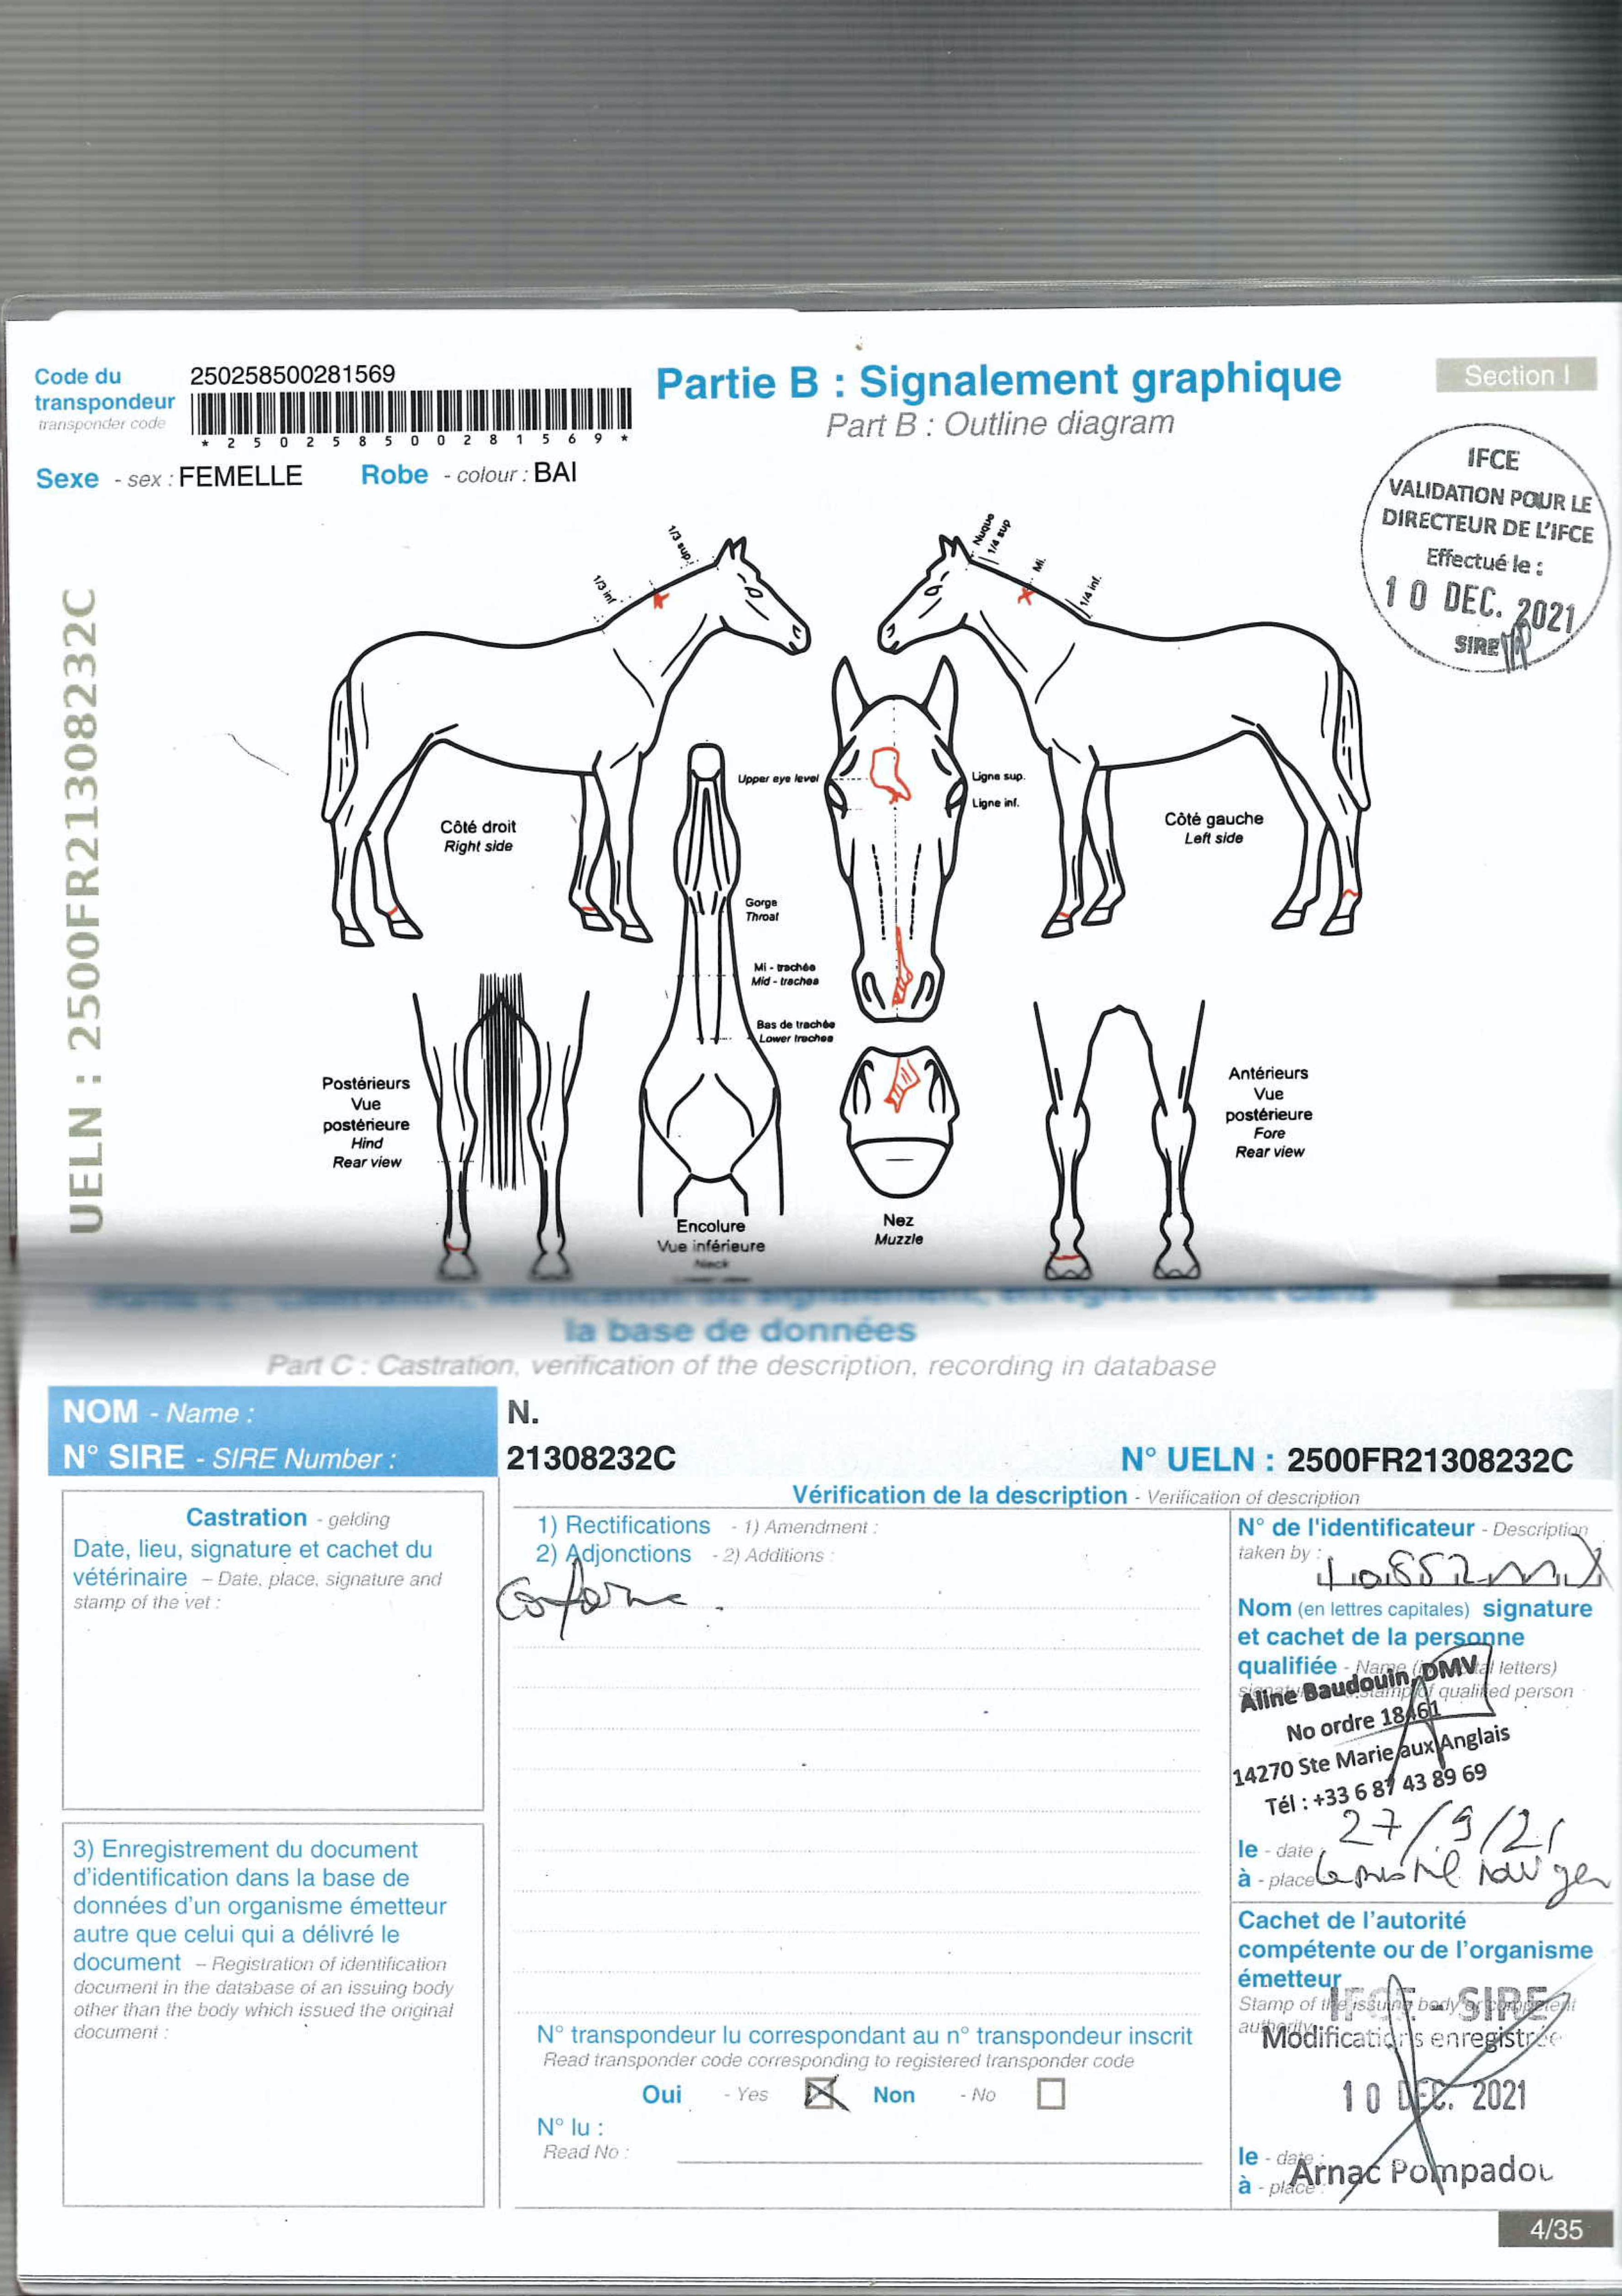 Code du
transpondeur
transponder code
250258500281569
* 2 5 0 2 5 8 5 0 0 2 8 1 5 6 9 *
Partie B : Signalement graphique
Part B : Outline diagram
Section I
Sexe - sex : FEMELLE Robe - colour : BAI
IFCE
VALIDATION POUR LE
DIRECTEUR DE L'IFCE
Effectué le :
10 DEC. 2021
SIRE
UELN : 2500FR21308232C
1/3 sup.
1/3 inf
Nuque
1/4 sup
Mi.
1/4 inf.
Upper eye level
Ligne sup.
Ligne inf.
Côté droit
Right side
Côté gauche
Left side
Gorge
Throat
Mi - trachée
Mid - trachea
Bas de trachée
Lower trachea
Postérieurs
Vue
postérieure
Hind
Rear view
Antérieurs
Vue
postérieure
Fore
Rear view
Encolure
Vue inférieure
Neck
Nez
Muzzle
la base de données
Part C : Castration, verification of the description, recording in database
NOM - Name :
N.
N° SIRE - SIRE Number :
21308232C
N° UELN : 2500FR21308232C
Vérification de la description - Verification of description
Castration - gelding
Date, lieu, signature et cachet du
vétérinaire - Date, place, signature and
stamp of the vet :
1) Rectifications - 1) Amendment :
2) Adjonctions - 2) Additions :
Conforme .
N° de l'identificateur - Description
taken by :
Nom (en lettres capitales) signature
et cachet de la personne
qualifiée - Name (in capital letters)
signature and stamp of qualified person
Aline Baudouin, DMV
No ordre 18461
14270 Ste Marie aux Anglais
Tél : +33 6 87 43 89 69
le - date 27/9/21
à - place
3) Enregistrement du document
d'identification dans la base de
données d'un organisme émetteur
autre que celui qui a délivré le
document - Registration of identification
document in the database of an issuing body
other than the body which issued the original
document :
Cachet de l'autorité
compétente ou de l'organisme
émetteur
Stamp of the issuing body or competent
authority
IFCE - SIRE
Modifications enregistrées
10 DEC. 2021
N° transpondeur lu correspondant au n° transpondeur inscrit
Read transponder code corresponding to registered transponder code
Oui - Yes Non - No
N° lu :
Read No :
le - date :
à - place :
Arnac Pompadou
4/35